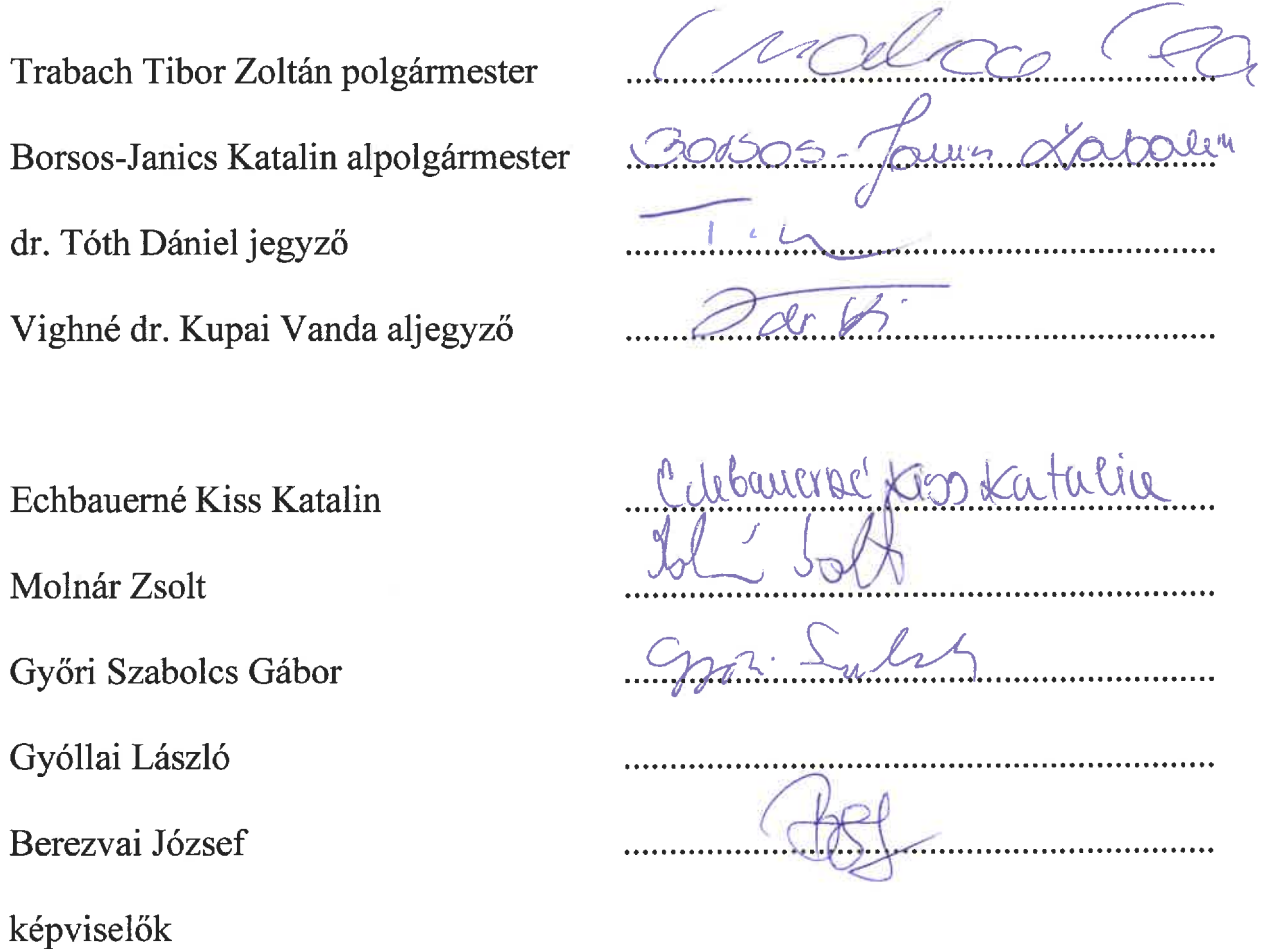 Trabach Tibor Zoltán polgármester ....................
Borsos-Janics Katalin alpolgármester Borsos-Janics Katalin
dr. Tóth Dániel jegyző ....................
Vighné dr. Kupai Vanda aljegyző dr.
Echbauerné Kiss Katalin Echbauerné Kiss Katalin
Molnár Zsolt ....................
Győri Szabolcs Gábor Győri
Gyóllai László ....................
Berezvai József ....................
képviselők